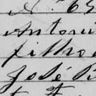 N. 65
Antoni
filho
José B